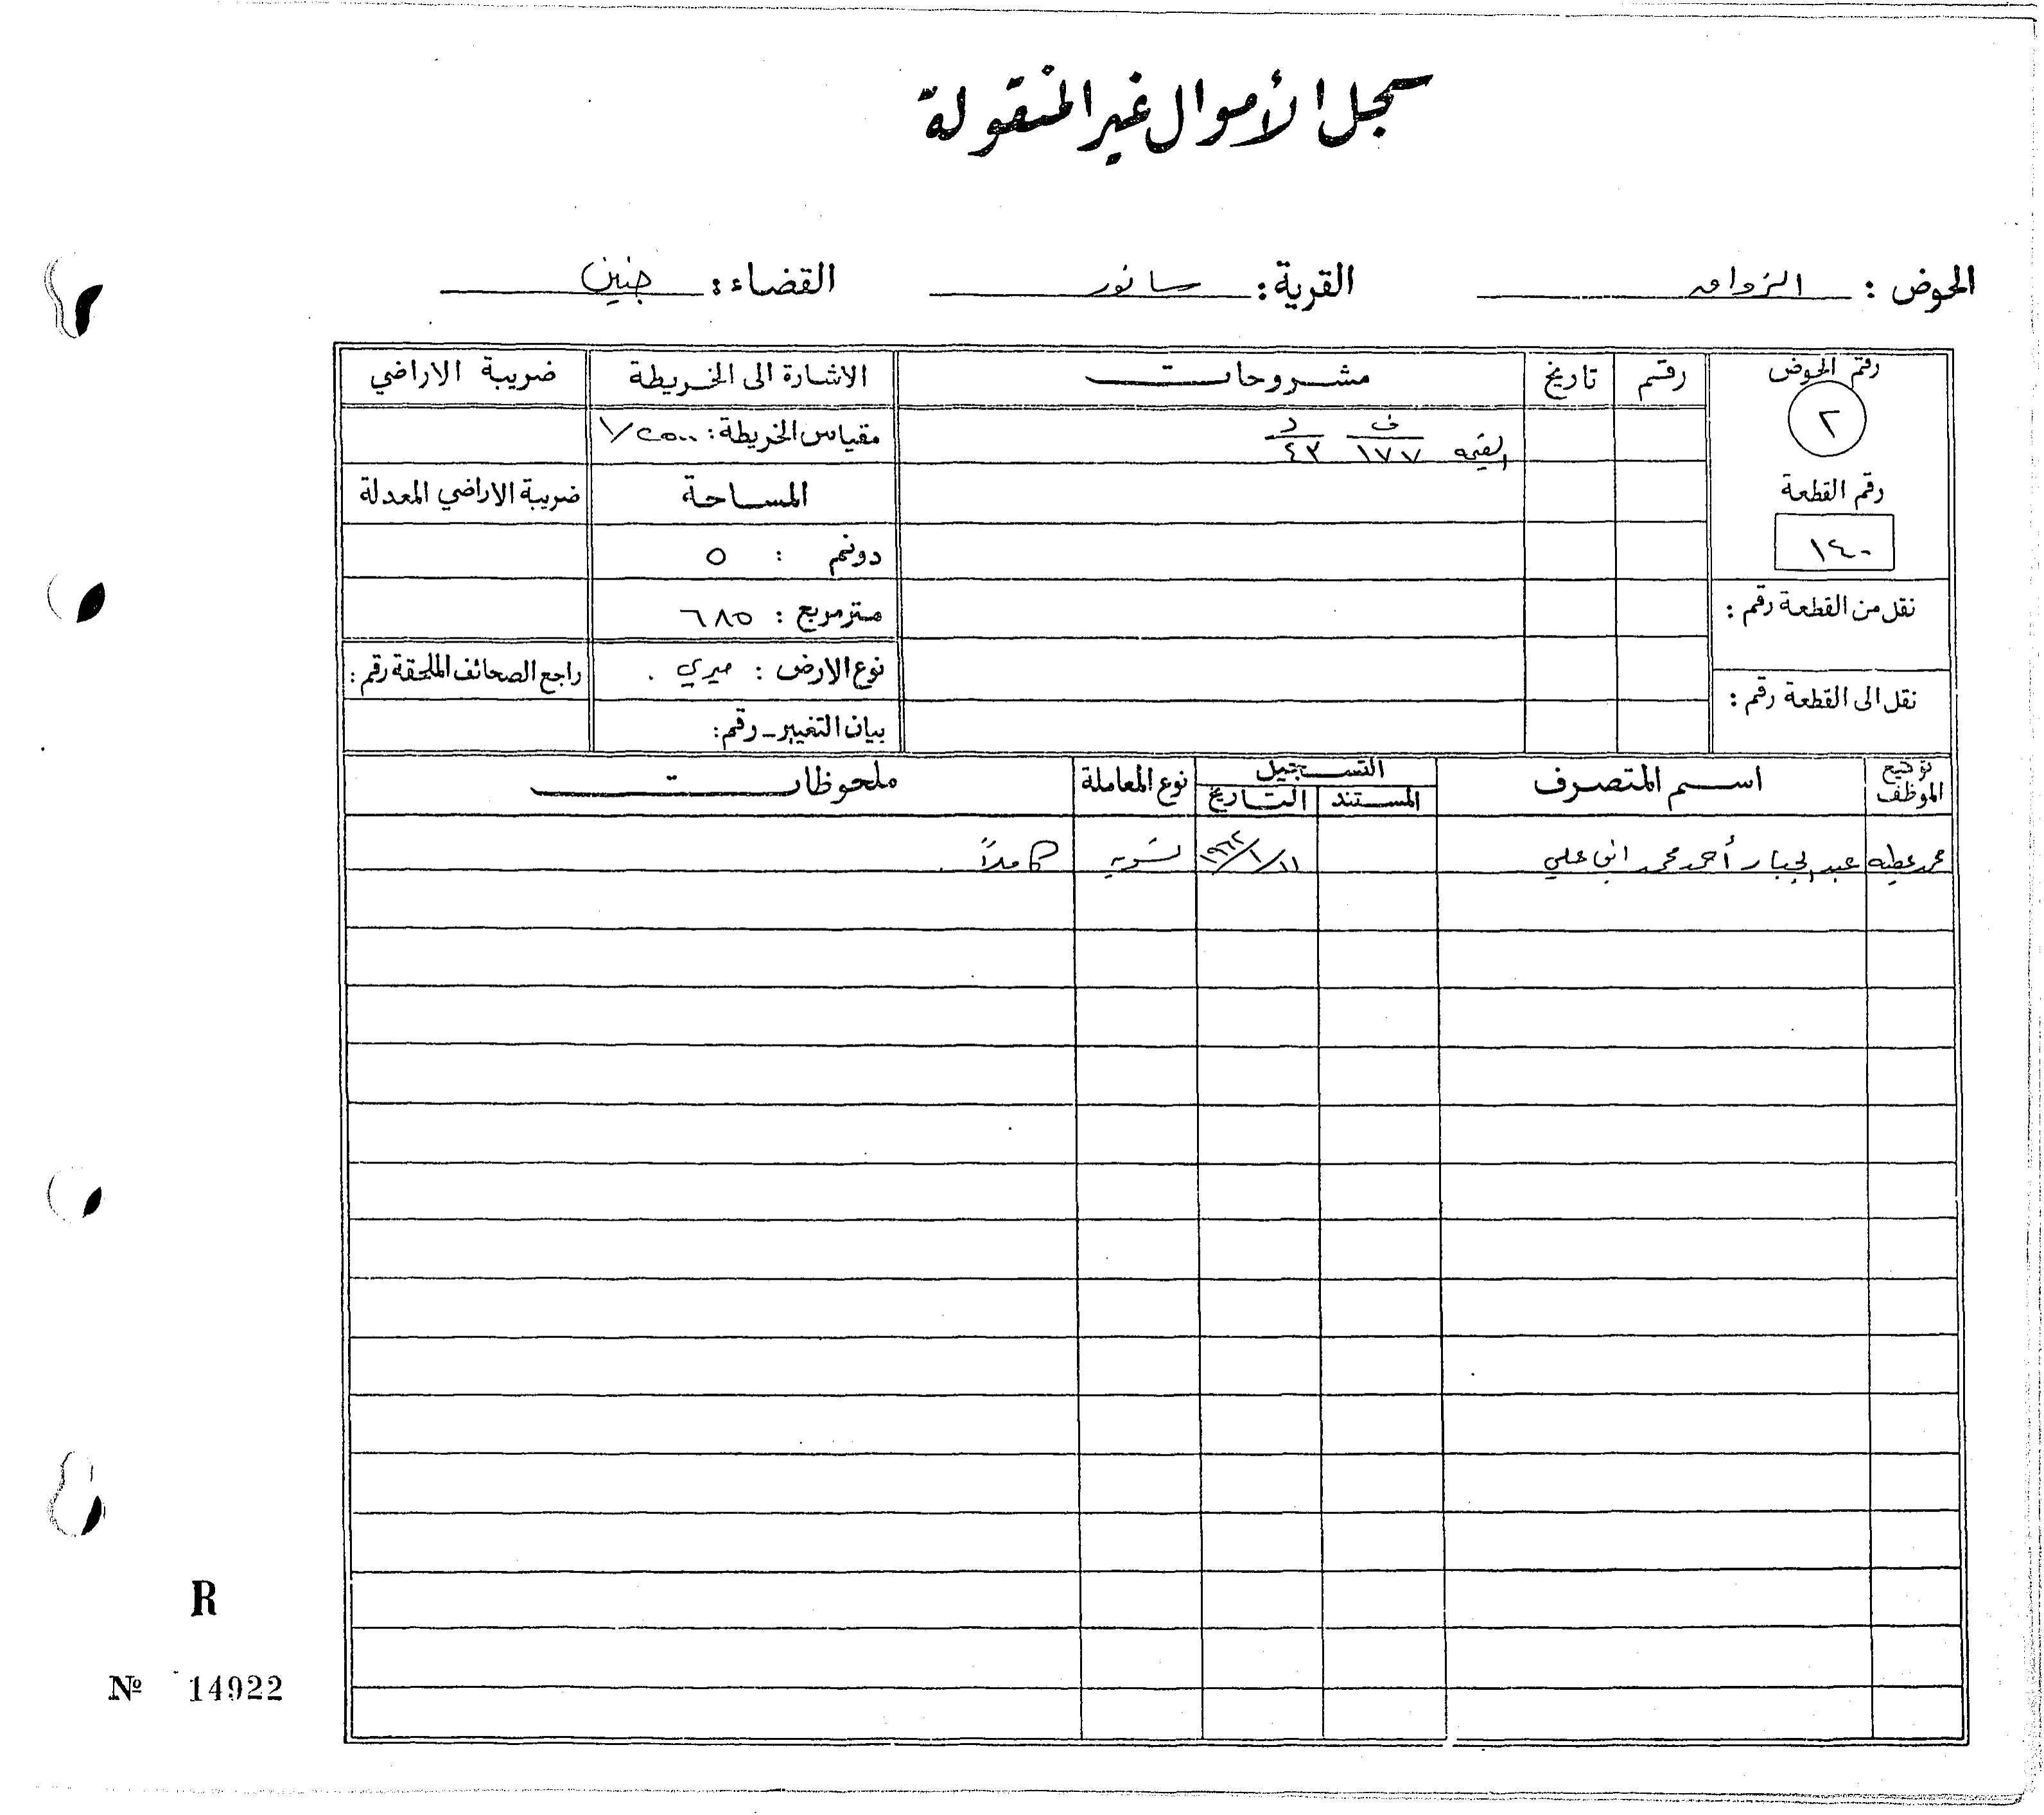 سجل الأموال غير المنقولة
الحوض : القرية : سانور القضاء : جنين
رقم الحوض رقم تاريخ مشروحات الاشارة الى الخريطة ضريبة الاراضي
٢ القيمه ف ١٧٧ د ٤٣ مقياس الخريطة : ١/٢٥٠٠
رقم القطعة المساحة ضريبة الاراضي المعدلة
١٤٠ دونم : ٥
نقل من القطعة رقم : متر مربع : ٦٨٥
نوع الارض : ميري . راجع الصحائف الملحقة رقم :
نقل الى القطعة رقم : بيان التغيير - رقم :
توقيع الموظف اسم المتصرف التسجيل نوع المعاملة ملحوظات
المستند التاريخ
محمد عطيه عبد الجبار أحمد محمد ابو علي ١١/١/١٩٦٢ تسويه كاملاً
R
Nº 14922